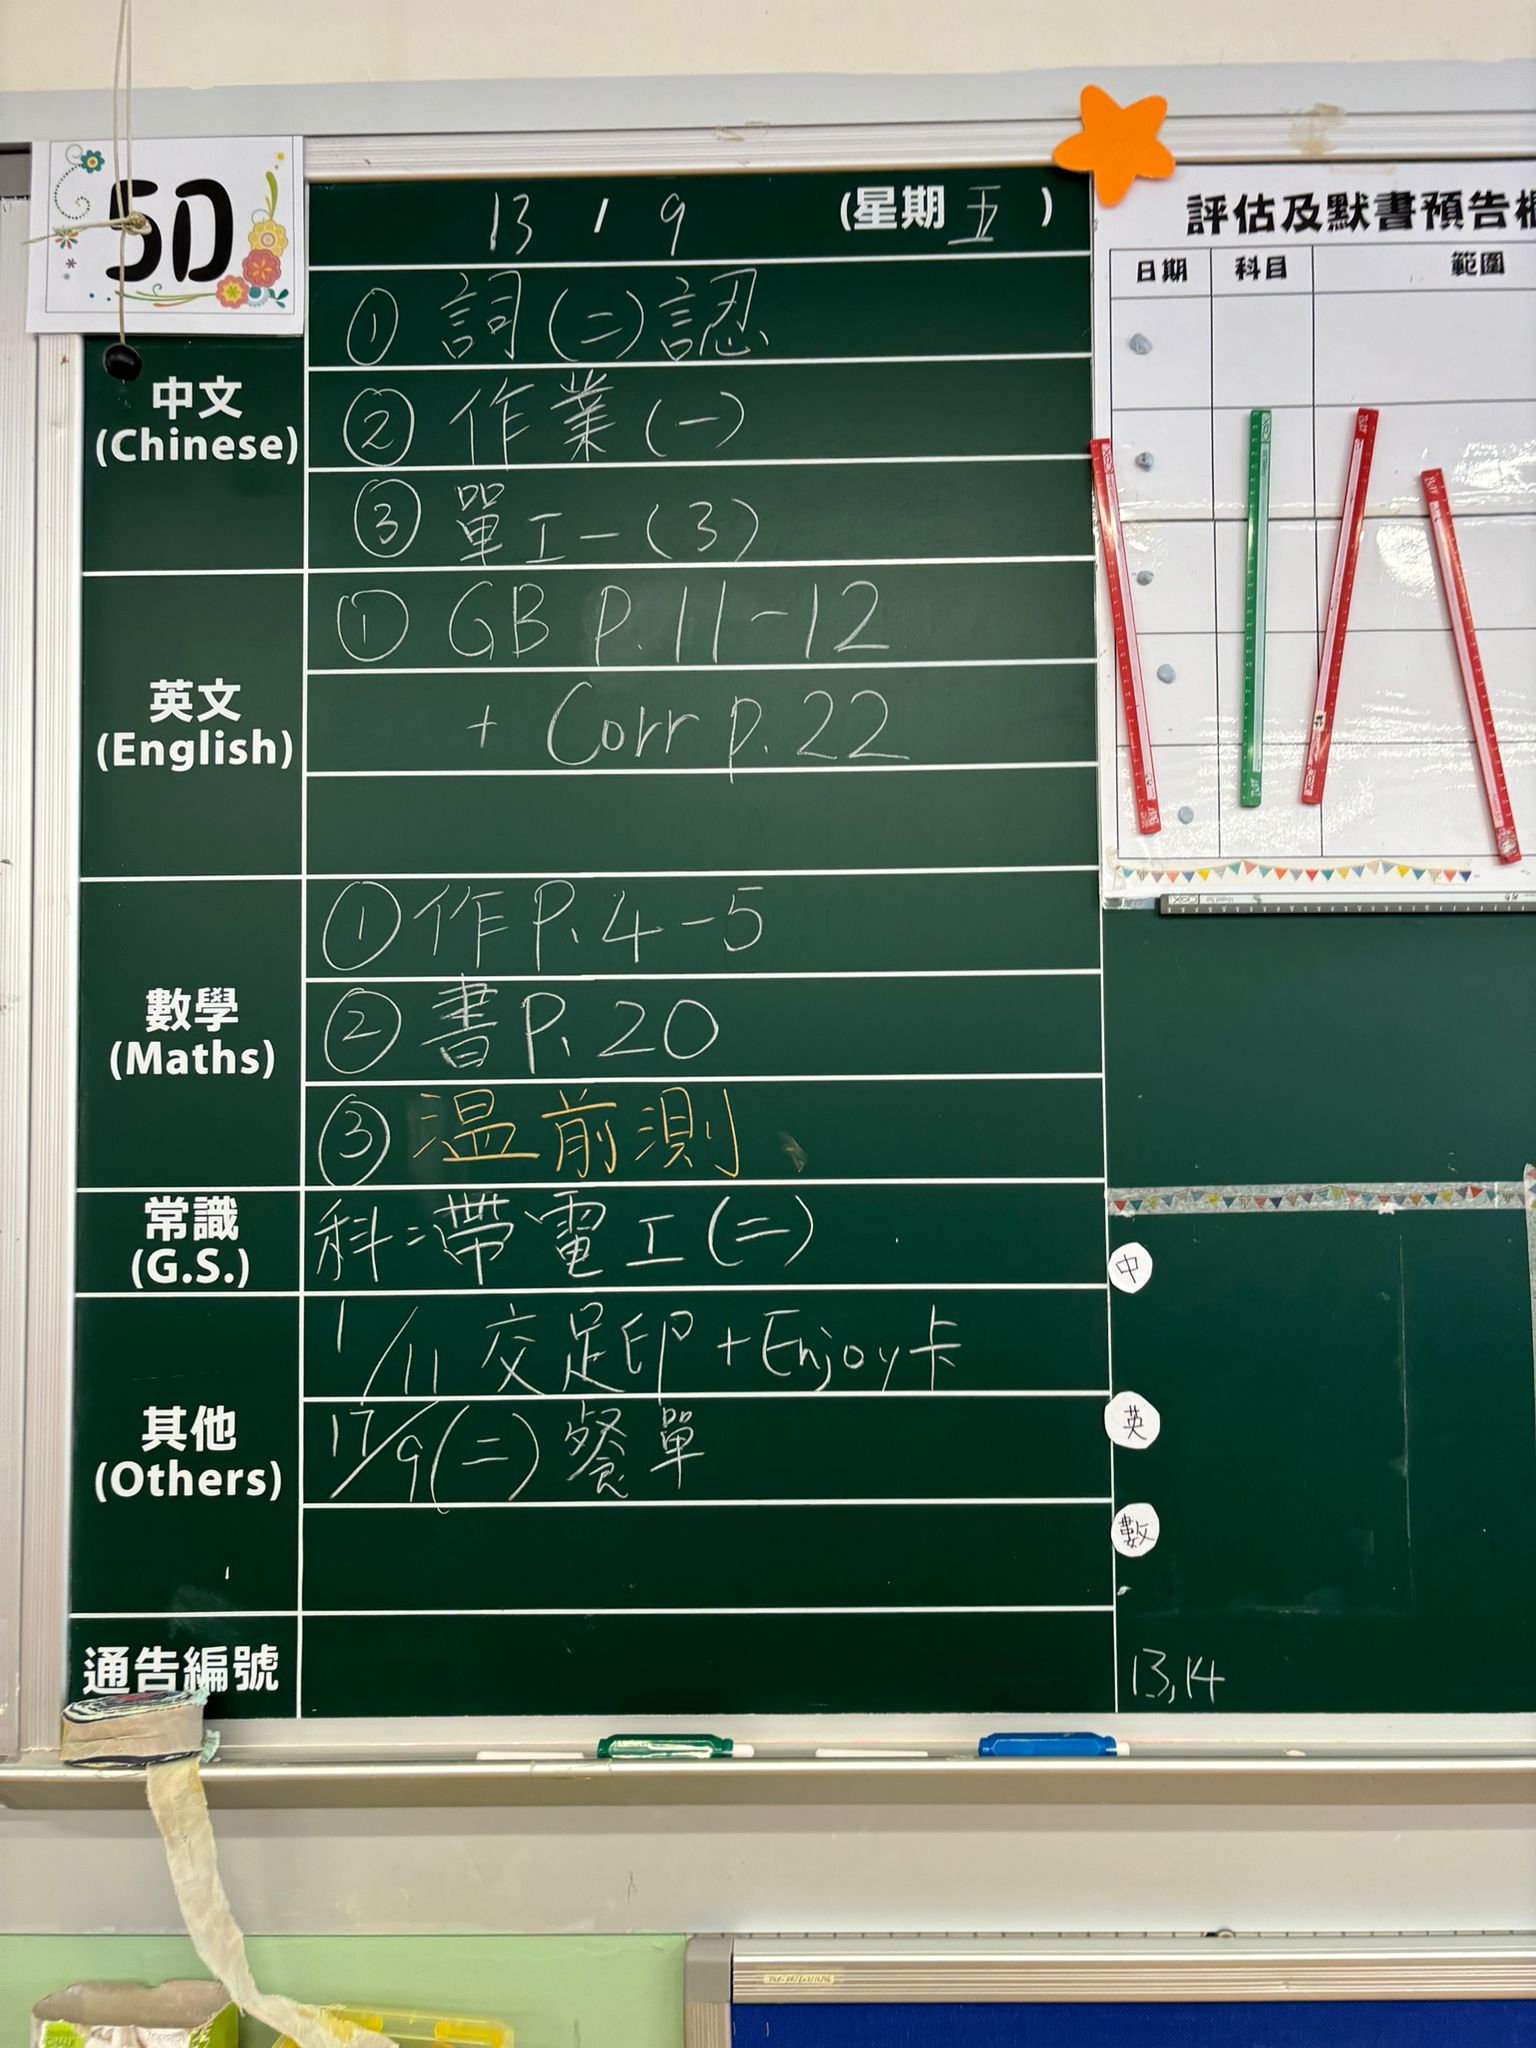 5D
13 / 9 (星期五)
中文
(Chinese)
① 詞(二)認
② 作業(一)
③ 單工一(3)
英文
(English)
① GB p.11-12
+ Corr p.22
數學
(Maths)
① 作P.4-5
② 書P.20
③ 温前測
常識
(G.S.)
科:帶電工(二)
其他
(Others)
1/11 交足印+Enjoy卡
17/9(二)餐單
通告編號
評估及默書預告
日期 科目 範圍
中
英
數
13,14